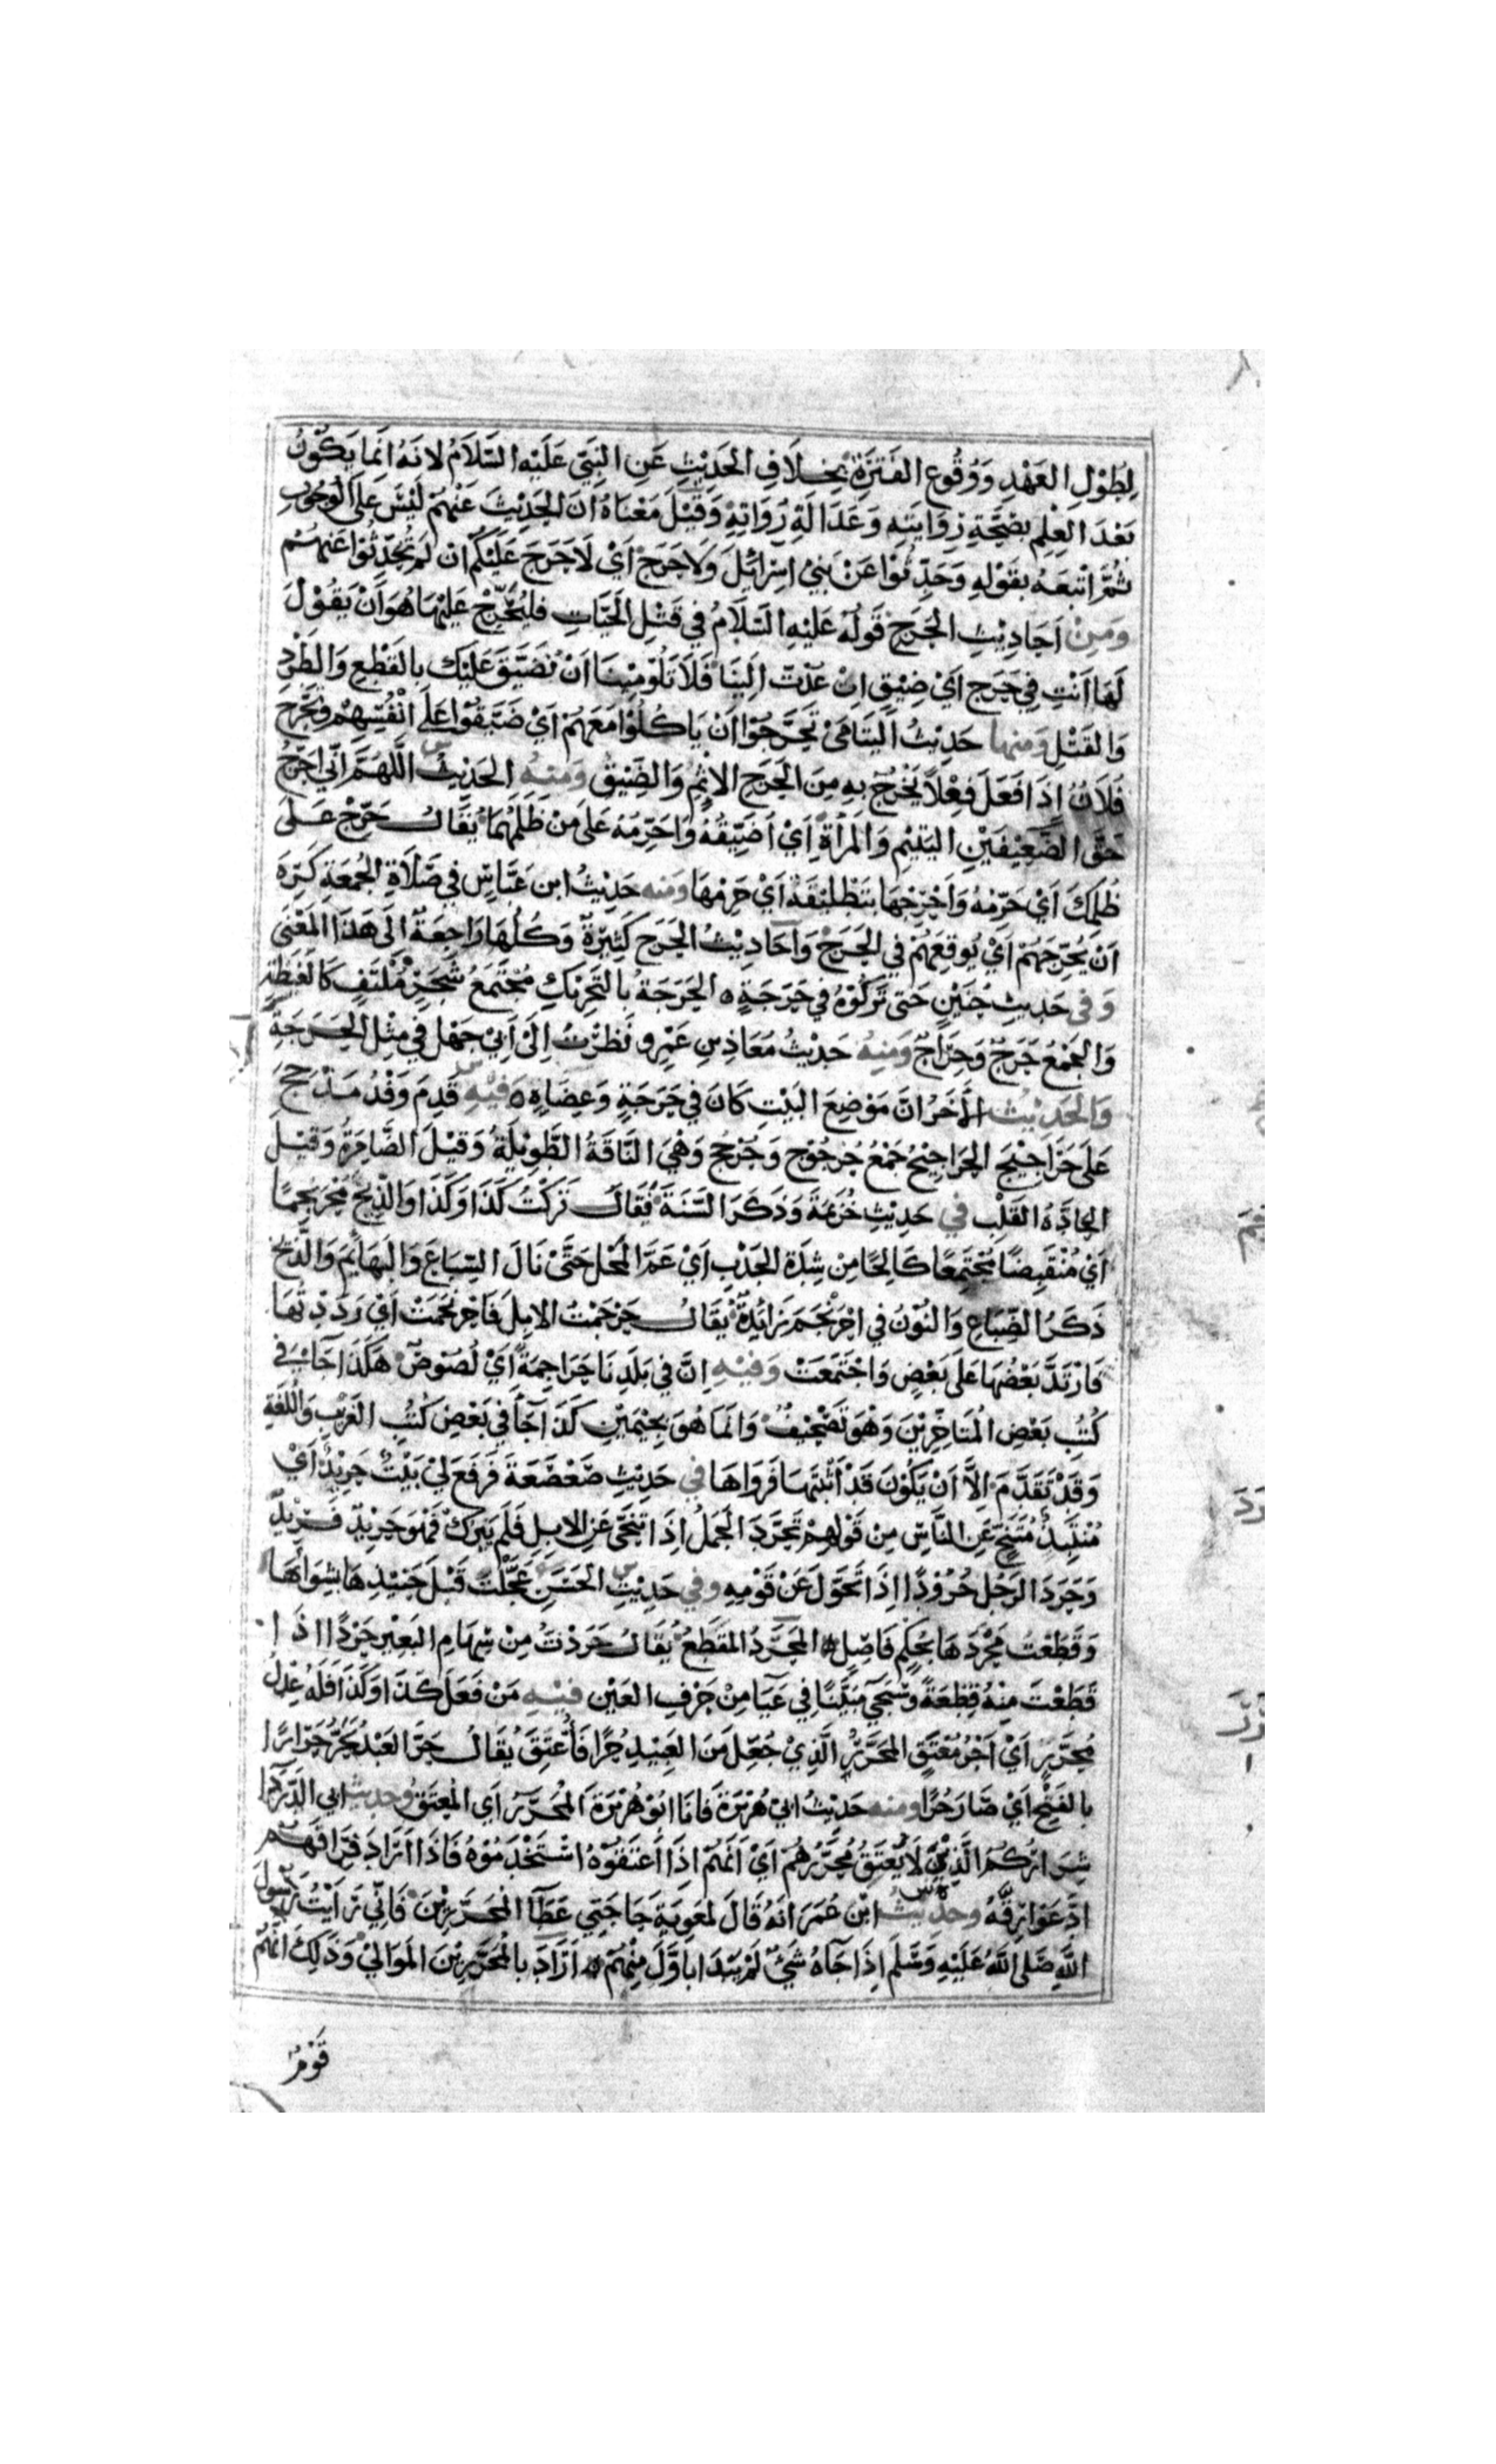 لِطُوْلِ العَهْدِ وَوُقُوعِ الفَتْرَةِ بِخِلَافِ الحَدِيْثِ عَنِ النَّبِيّ عَلَيْهِ السَّلَامُ لِانَّهُ اِنَّمَا يَكُوْنُ
بَعْدَ العِلْمِ بِصِحَّةِ رِوَايَتِهِ وَعَدَالَةِ رُوَاتِهِ وَقِيْلَ مَعْنَاهُ اَنَّ الحَدِيْثَ عَنْهُمْ لَيْسَ عَلَى الوُجُوْبِ
ثُمَّ اتْبَعَهُ بِقَوْلِهِ وَحَدِّثُوْا عَنْ بَنِيْ اِسْرَائِيْلَ وَلَاحَرَجَ اَيْ لَاحَرَجَ عَلَيْكُمْ اِنْ لَمْ تُحَدِّثُوْا عَنْهُمْ
وَمِنْ اَحَادِيْثِ الحَرَجِ قَوْلُهُ عَلَيْهِ السَّلَامُ فِي قَتْلِ الحَيَّاتِ فَلْيُحَرِّجْ عَلَيْهَا هُوَ اَنْ يَقُوْلَ
لَهَا اَنْتِ فِي حَرَجٍ اَيْ ضِيْقٍ اِنْ عُدْتِ اِلَيْنَا فَلَا تَلُوْمِيْنَا اَنْ نُضَيِّقَ عَلَيْكِ بِالقَطْعِ وَالطَّرْدِ
وَالقَتْلِ وَمِنْهَا حَدِيْثُ اليَتَامَى تَحَرَّجُوْا اَنْ يَاكُلُوْا مَعَهُمْ اَيْ ضَيَّقُوْا عَلَى اَنْفُسِهِمْ وَتَحَرَّجَ
فُلَانٌ اِذَا فَعَلَ فِعْلاً يَخْرُجُ بِهِ مِنَ الحَرَجِ الاِثْمِ وَالضِّيْقِ وَمِنْهُ الحَدِيْثُ اللَّهُمَّ اِنِّي اُحَرِّجُ
حَقَّ الضَّعِيْفَيْنِ اليَتِيْمِ وَالمَرْأَةِ اَيْ اُضَيِّقُهُ وَاُحَرِّمُهُ عَلَى مَنْ ظَلَمَهُمَا يُقَالُ حَرِّجْ عَلَى
ظُلْمِكَ اَيْ حَرِّمْهُ وَاَحْرِجْهَا بِتَطْلِيْقَةٍ اَيْ حَرِّمْهَا وَمنه حَدِيْثُ ابنِ عَبَّاسٍ فِي صَلَاةِ الجُمُعَةِ كَرِهَ
اَنْ يُحْرِجَهُمْ اَيْ يُوْقِعَهُمْ فِي الحَرَجِ وَاَحَادِيْثُ الحَرَجِ كَثِيْرَةٌ وَكُلُّهَا رَاجِعَةٌ اِلَى هَذَا المَعْنَى
وَفِي حَدِيثِ حُنَيْنٍ حَتى تَرَكُوْهُ فِي حَرَجَةٍ ٥ الحَرَجَةُ بِالتَحْرِيْكِ مُجْتَمَعُ شَجَرٍ مُلْتَفٍّ كَالغَيْضَةِ
وَالجَمْعُ حَرَجٌ وَحِرَاجٌ وَمِنْهُ حَدِيْثُ مُعَاذِ بنِ عَمْرٍو نَظَرْتُ اِلَى اَبِيْ جَهْلٍ فِي مِثْلِ الحَرَجَةِ
وَالحَدِيْثُ الأَخَرُ اِنَّ مَوْضِعَ البَيْتِ كَانَ فِي حَرَجَةٍ وَعِضَاهٍ ٥ وَفِيْهِ قَدِمَ وَفْدُ مَذْحِجَ
عَلَى حَرَاجِيْجَ الحَرَاجِيْجُ جَمْعُ حُرْجُوْجٍ وَحُرْجُجٍ وَهِيَ النَّاقَةُ الطَّوِيْلَةُ وَقِيْلَ الضَّامِرَةُ وَقِيْلَ
الحَادَّةُ القَلْبِ في حَدِيْثِ خُزَيْمَةَ وَذَكَرَ السَّنَةَ فَقَالَ تَرَكَتْ كَذَا وَكَذَا وَالذِّيْخَ مُحْرَنْجِمًا
اَيْ مُنْقَبِضًا مُجْتَمِعًا كَالِحًا مِنْ شِدَّةِ الجَدْبِ اَيْ عَمَّ المَحْلُ حَتَّى نَالَ السِّبَاعَ وَالبَهَايِمَ وَالذِّيْخُ
ذَكَرُ الضِّبَاعِ وَالنُوْنُ فِي احْرَنْجَمَ زَائِدَةٌ يُقَالُ حَرْجَمْتُ الاِبِلَ فَاحْرَنْجَمَتْ اَيْ رَدَدْتُهَا
فَارْتَدَّ بَعْضُهَا عَلَى بَعْضٍ وَاجْتَمَعَتْ وَفِيْهِ اِنَّ فِي بَلَدِنَا حَرَاجِمَةً اَيْ لُصُوْصٌ هَكَذَا جَاءَ فِي
كُتُبِ بَعْضِ المُتَاَخِّرِيْنَ وَهُوَ تَصْحِيْفٌ وَاِنَّمَا هُوَ بِجِيْمَيْنِ كَذَا جَآءَ فِي بَعْضِ كُتُبِ الغَرِيْبِ وَاللُّغَةِ
وَقَدْ تَقَدَّمَ اِلَّا اَنْ يَكُوْنَ قَدْ اَثْبَتَهَا فَرَوَاهَا في حَدِيْثِ صَعْصَعَةَ فَرُفِعَ لِيْ بَيْتٌ حَرِيْدٌ اَيْ
مُنْتَبِذٌ مُتَنَحٍّ عَنِ النَّاسِ مِنْ قَوْلِهِمْ تَحَرَّدَ الجَمَلُ اِذَا تَنَحَّى عَنِ الاِبِلِ فَلَمْ يَبْرُكْ فَهُوَ حَرِيْدٌ فَرِيْدٌ
وَحَرَدَ الرَّجُلُ حُرُوْدًا اِذَا تَحَوَّلَ عَنْ قَوْمِهِ وفي حَدِيْثِ الحَسَنِ عَجَّلْتَ قَبْلَ حَنِيْذِهَا بِشِوَائِهَا
وَقَطَعْتَ مُحَرَّدَهَا بِحُكْمٍ فَاصِلٍ ٥ المُحَرَّدُ المُقَطَّعُ يُقَالُ حَرَدْتُ مِنْ سَنَامِ البَعِيْرِ حَرْدًا اِذَا
قَطَعْتَ مِنْهُ قِطْعَةً وَسَيَجِيْءُ مُبَيَّنًا فِي عَيَا مِنْ حَرْفِ العَيْنِ فِيْهِ مَنْ فَعَلَ كَذَا وَكَذَا فَلَهُ عِدْلُ
مُحَرَّرٍ اَيْ اَجْرُ مُعْتَقٍ المُحَرَّرُ الَّذِيْ جُعِلَ مِنَ العَبِيْدِ حُرًّا فَأُعْتِقَ يُقَالُ حَرَّ العَبْدُ يَحَرُّ حَرَارًا
بِالفَتْحِ اَيْ صَارَ حُرًّا ومنه حَدِيْثُ ابِيْ هُرَيْرَةَ فَانَا ابُوْ هُرَيْرَةَ المُحَرَّرُ اَيِ المُعْتَقُ وحديث ابي الدَّرْدَآءِ
شِرَارُكُمُ الَّذِيْنَ لَا يُعْتَقُ مُحَرَّرُهُمْ اَيْ اَنَّهُمْ اِذَا اَعْتَقُوْهُ اسْتَخْدَمُوْهُ فَاِذَا اَرَادَ فِرَاقَهُمْ
ادَّعَوْا رِقَّهُ وحديث ابْنِ عُمَرَ اَنَّهُ قَالَ لِمُعَوِيَةَ حَاجَتِي عَطَآءُ المُحَرَّرِيْنَ فَاِنِّي رَاَيْتُ رَسُوْلَ
اللَّهِ صَلَى اللَّهُ عَلَيْهِ وَسَلَّمَ اِذَا جَآءَهُ شَيْءٌ لَمْ يَبْدَا بِاَوَّلَ مِنْهُمْ ٥ اَرَادَ بِالمُحَرَّرِيْنَ المَوَالِيْ وَذَلِكَ اَنَّهُمْ
قَوْمٌ